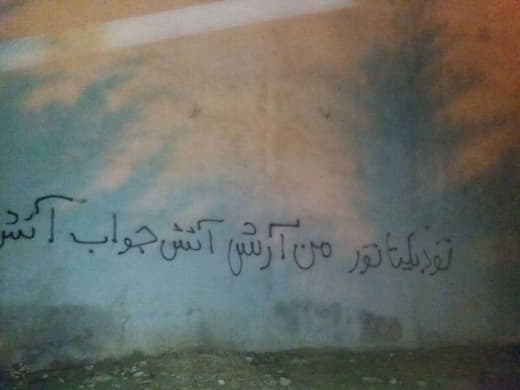 تو دیکتاتور من آرش آتش جواب آتش